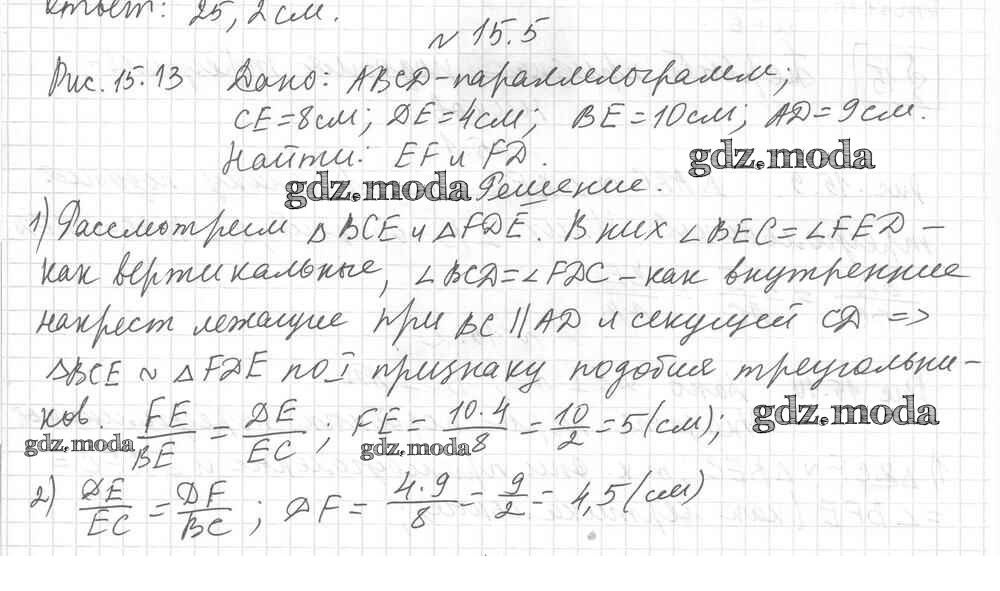 Ответ: 25,2 см.
№ 15.5
Рис. 15.13 Дано: ABCD - параллелограмм;
CE = 8см; DE = 4см; BE = 10см; AD = 9см.
Найти: EF и FD.
gdz.moda
gdz.moda
Решение.
1) Рассмотрим △BCE и △FDE. В них ∠BEC = ∠FED -
как вертикальные, ∠BCD = ∠FDC - как внутренние
накрест лежащие при BC || AD и секущей CD =>
△BCE ~ △FDE по I признаку подобия треугольни-
ков. FE/BE = DE/EC; FE = 10·4/8 = 10/2 = 5 (см);
gdz.moda
gdz.moda
gdz.moda
2) DE/EC = DF/BC; DF = 4·9/8 = 9/2 = 4,5 (см)